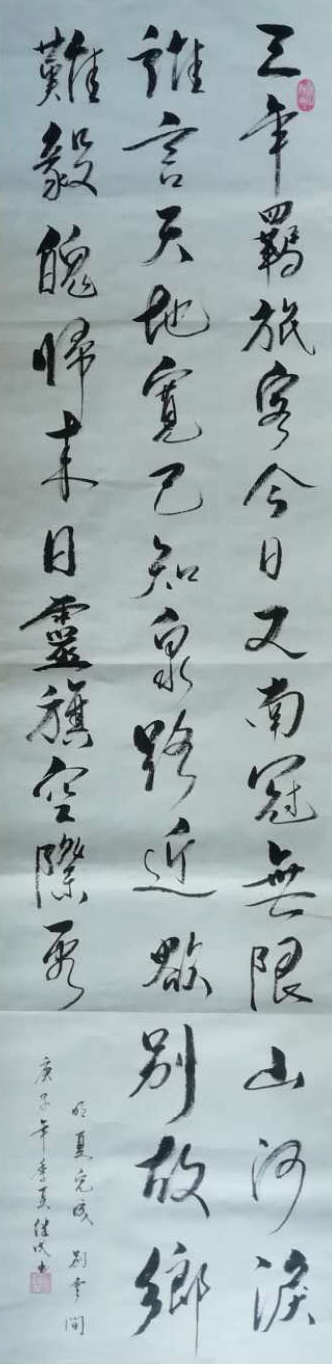 三年羈旅客今日又南冠無限山河淚
誰言天地寬已知泉路近欲別故鄉
難毅魄歸來日靈旗空際看
明夏完淳 別雲間
庚子年季夏